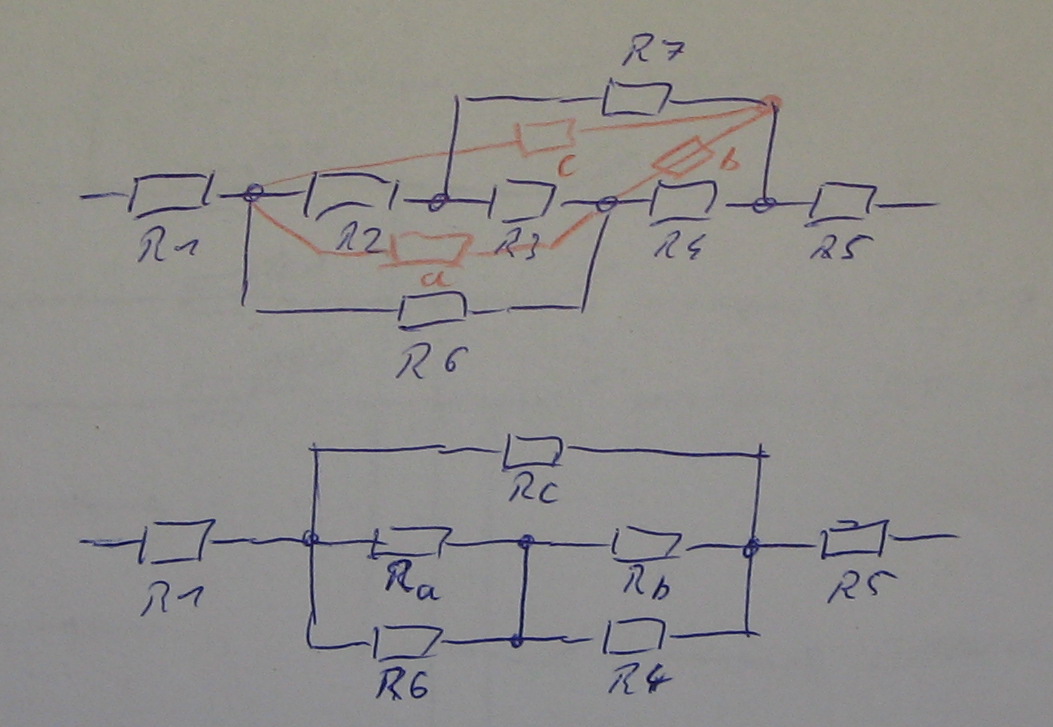 R7
c
b
R1 R2 R3 R4 R5
a
R6
Rc
R1 Ra Rb R5
R6 R4